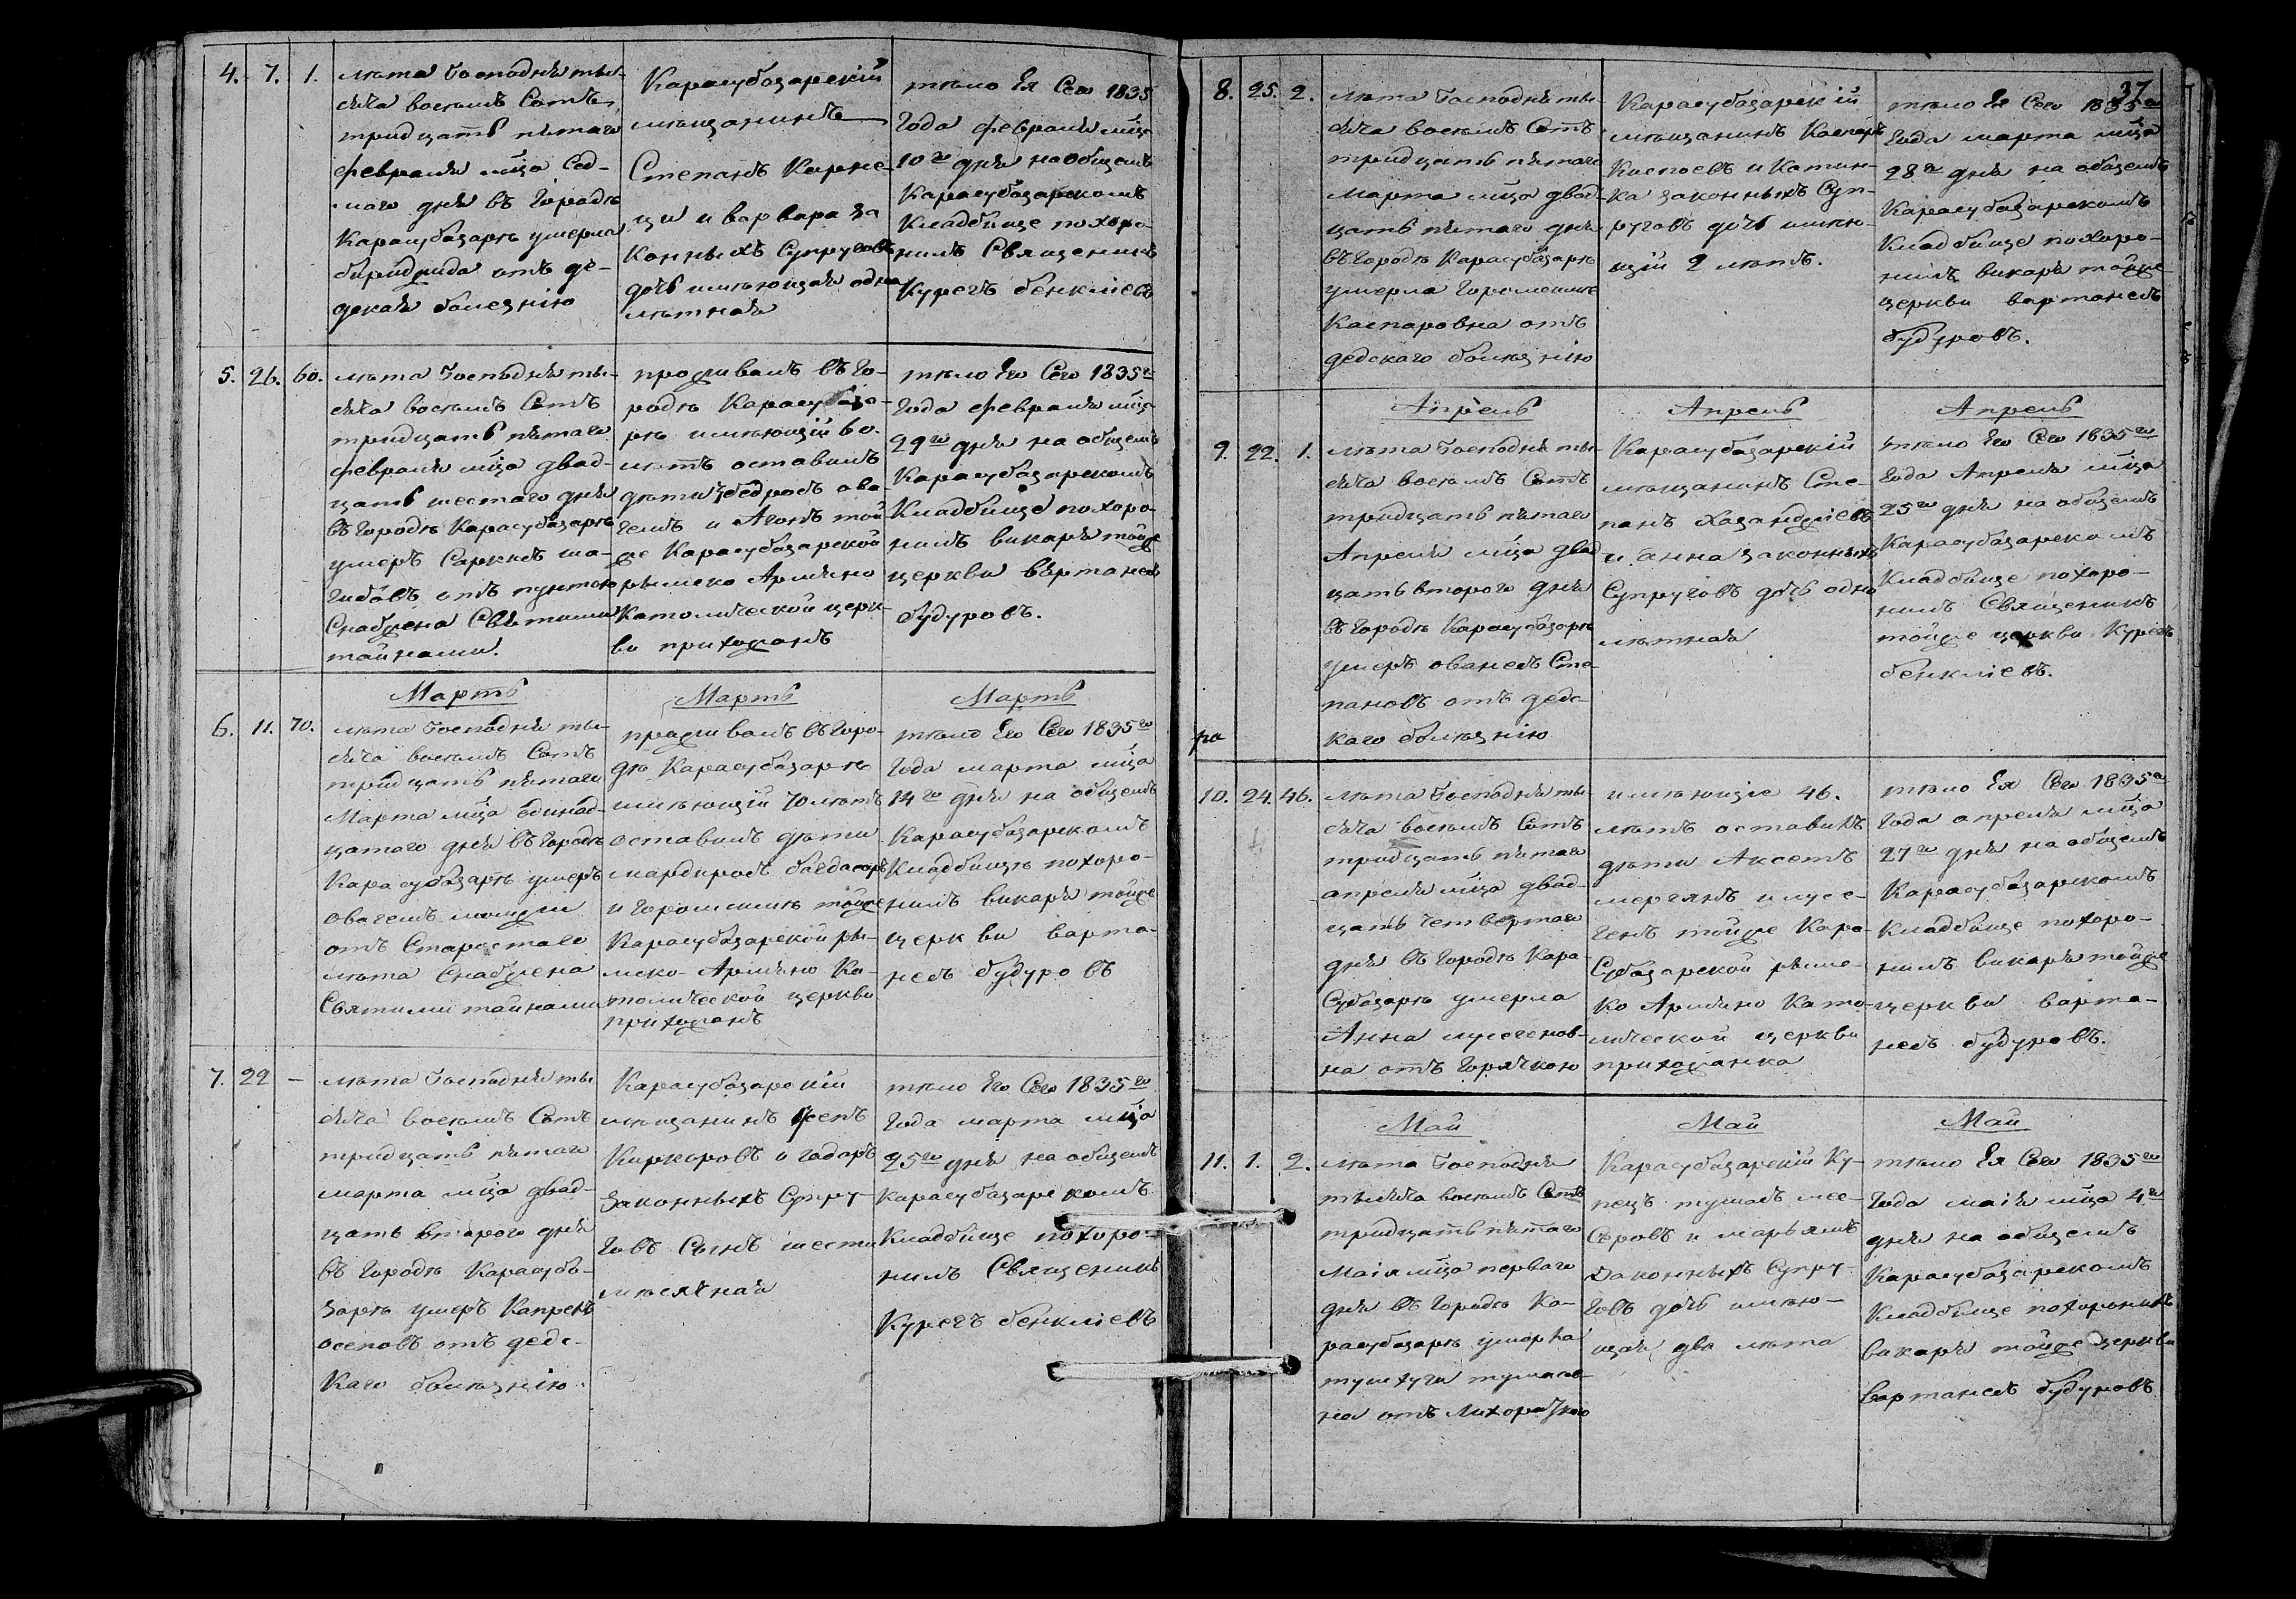 4. 7. 1.
лѣта Господня ты-
сяча восемь Сотъ
тридцать пятаго
февраля мѣца Сед-
маго дня въ Городѣ
Карасубазарѣ умерла
отъ де-
цкая болезнію
Карасубазарскій
мѣщанинъ
Степанъ
и варвара за
конныхъ Супруговъ
дочь имѣющая одна
лѣтная
тѣло Ея Сего 1835
Года февраля мѣца
10го дня на общемъ
Карасубазарскомъ
Кладбище похоро-
нилъ Священникъ
Курегъ бенкліевъ
5. 26. 60.
лѣта Господня ты-
сяча восемь Сотъ
тридцать пятаго
февраля мѣца двад-
цать шестаго дня
въ Городѣ Карасубазарѣ
умеръ Саркисъ
отъ
Снабжена Святыми
тайнами.
проживалъ въ Го-
родѣ Карасубаза-
рѣ имѣющій 60.
лѣтъ оставилъ
дѣти ова-
гемъ и Агопъ той
же Карасубазарской
рымско Армяно
Католической церк-
ви прихожанъ
тѣло Его Сего 1835го
Года февраля мѣца
29го дня на общемъ
Карасубазарскомъ
Кладбище похоро-
нилъ викарія тойже
церкви вартанесъ
будуровъ.
Мартъ
Мартъ
Мартъ
6. 11. 70.
лѣта Господня ты-
сяча восемь Сотъ
тридцать пятаго
Марта мѣца одинад-
цатаго дня въ Городѣ
Карасубазарѣ умеръ
овагемъ
отъ Старостаго
лѣта Снабжена
Святыми тайнами
проживалъ въ Горо-
дѣ Карасубазарѣ
имѣющій 70 лѣтъ
оставилъ дѣти
мардиросъ багдасаръ
и Горомсимъ тойже
Карасубазарской ры-
мско-Армяно Ка-
толической церкви
прихожанъ
тѣло Его Сего 1835го
Года марта мѣца
14го дня на общемъ
Карасубазарскомъ
Кладбищѣ похоро-
нилъ викарія тойже
церкви варта-
несъ будуровъ
7. 22 —
лѣта Господня ты
сяча восемь Сотъ
тридцать пятаго
марта мѣца двад-
цать втораго дня
въ Городѣ Карасуба-
зарѣ умеръ Капрелъ
осеповъ отъ детс-
каго болѣзнію.
Карасубазарскій
мѣщанинъ
Киркоровъ и
Законныхъ Супру-
говъ Сынъ шести
мѣсячная
тѣло Его Сего 1835го
Года марта мѣца
25го дня на общемъ
Карасубазарскомъ
Кладбище похоро-
нилъ Священикъ
Курегъ бенкліевъ
37
8. 25. 2.
лѣта Господня ты-
сяча восемь Сотъ
тридцать пятаго
марта мѣца двад-
цать пятаго дня
въ Городѣ Карасубазарѣ
умерла Горомсиме
Каспаровна отъ
детскаго болѣзнію
Карасубазарскій
мѣщанинъ Каспаръ
и Катин-
ка законныхъ Суп-
руговъ дочь имѣю-
щій 2 лѣтъ.
тѣло Ея Сего 1835го
Года марта мѣца
28го дня на общемъ
Карасубазарскомъ
Кладбище похоро-
нилъ викарія тойже
церкви вартанесъ
будуровъ.
Апрель
Апрель
Апрель
9. 22. 1.
лѣта Господня ты-
сяча восемь Сотъ
тридцать пятаго
Апреля мѣца двад
цать второго дня
въ Городѣ Карасубазарѣ
умеръ ованесъ Сте-
пановъ отъ детс-
каго болѣзнію
Карасубазарскій
мѣщанинъ Сте-
панъ Хазанджіевъ
и анна законныхъ
Супруговъ дочь одно
лѣтная
тѣло Его Сего 1835го
Года Апреля мѣца
25го дня на общемъ
Карасубазарскомъ
Кладбище похоро-
нилъ Священикъ
тойже церкви Курегъ
бенкліевъ.
ра
10. 24. 46.
лѣта Господня ты-
сяча восемь Сотъ
тридцать пятаго
апреля мѣца двад-
цать четвертаго
дня въ Городѣ Кара-
Субазарѣ умерла
Анна мусегенов-
на отъ Горячкою
имѣющіе 46.
лѣтъ оставилъ
дѣти Аксетъ
и мусе-
генъ тойже Кара-
Субазарской рымс-
ко Армяно Като-
лической церкви
прихожанка
тѣло Ея Сего 1835го
Года апреля мѣца
27го дня на общемъ
Карасубазарскомъ
Кладбище похоро-
нилъ викарія тойже
церкви варта-
несъ будуровъ.
Май
Май
Май
11. 1. 2.
лѣта Господня
тысяча восемь Сотъ
тридцать пятаго
Маія мѣца перваго
дня въ Городѣ Ка-
расубазарѣ умерла
тумасов-
на отъ Лихорадкою
Карасубазарскій Ку-
пецъ тумасъ мсе-
Серовъ и марьямъ
Законныхъ Супру-
говъ дочь имѣю-
щая два лѣта
тѣло Ея Сего 1835го
Года маія мѣца 4го
дня на общемъ
Карасубазарскомъ
Кладбище похоронилъ
викарія тойже церкви
Вартанесъ будуровъ